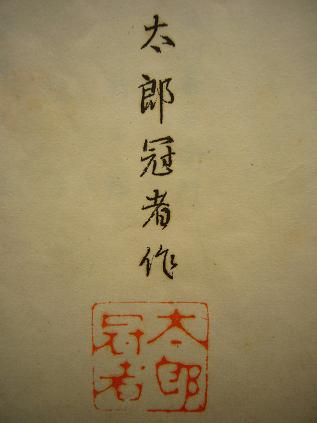 太郎冠者作
太郎
冠者